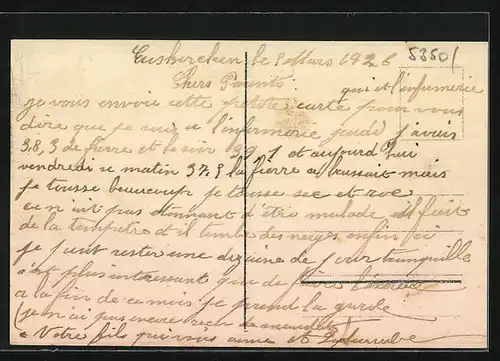 Euskirchen le 5 Mars 1926
5350/
Chers Parents qui est l'infirmerie
je vous envoie cette petite carte pour vous
dire que je suis a l'infirmerie jeudi j'avais
38,3 de fievre et le soir 39 1 et aujourd'hui
vendredi ce matin 37,9 la fievre a baissait mais
je tousse beaucoup je tousse sec et
ce n ait pas etonnant d'être malade il fait
de la tempete et il tombe des neiges enfin ici
je vait rester une dizaine de jour tranquille
c'est plus interessant que de
a la fin de ce mois je prend la garde
(je n ai pas encore reçu de mandat)
Votre fils qui vous aime et